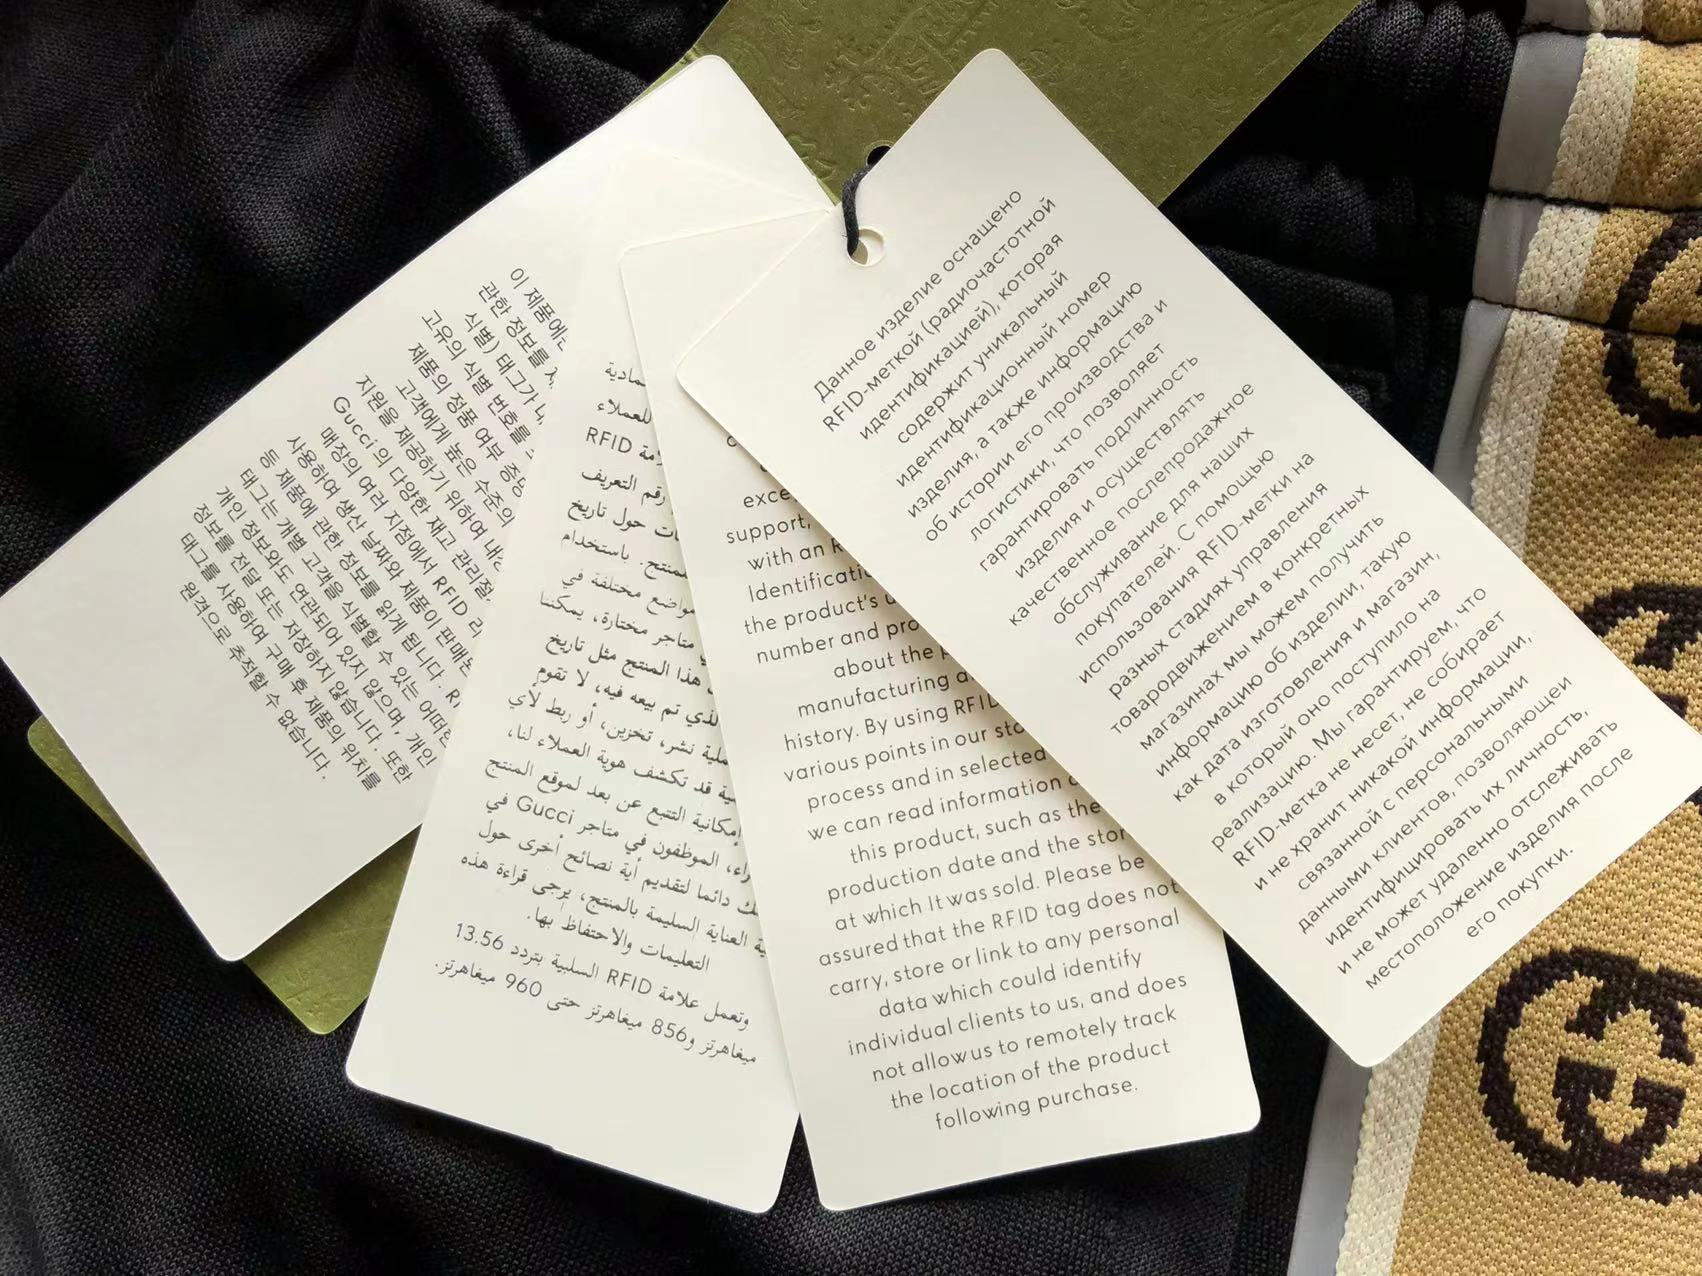 이 제품에는
관한 정보를
식별) 태그가
고유의 식별 번호를
제품의 정품 여부
고객에게 높은 수준의
지원을 제공하기 위하여
Gucci의 다양한 재고 관리
매장의 여러 지점에서 RFID
사용하여 생산 날짜와 제품이 판매된
등 제품에 관한 정보를 읽게 됩니다.
태그는 개별 고객을 식별할 수 있는
개인 정보와도 연관되어 있지 않으며, 개인
정보를 전달 또는 저장하지 않습니다. 또한
태그를 사용하여 구매 후 제품의 위치를
원격으로 추적할 수 없습니다.
للعملاء
RFID
رقم التعريف
حول تاريخ
باستخدام
مواضع مختلفة في
متاجر مختارة، يمكننا
هذا المنتج مثل تاريخ
الذي تم بيعه فيه، لا تقوم
نشر، تخزين، أو ربط لأي
قد تكشف هوية العملاء لنا،
إمكانية التتبع عن بعد لموقع المنتج
الموظفون في متاجر Gucci في
دائما لتقديم أية نصائح أخرى حول
العناية السليمة بالمنتج، يرجى قراءة هذه
التعليمات والاحتفاظ بها.
وتعمل علامة RFID السلبية بتردد 13.56
ميغاهرتز و856 ميغاهرتز حتى 960 ميغاهرتز.
support,
with an
the product's
number and
about the
manufacturing
history. By using RFID
various points in our
process and in selected
we can read information
this product, such as the
production date and the
at which It was sold. Please be
assured that the RFID tag does not
carry, store or link to any personal
data which could identify
individual clients to us, and does
not allow us to remotely track
the location of the product
following purchase.
Данное изделие оснащено
RFID-меткой (радиочастотной
идентификацией), которая
содержит уникальный
идентификационный номер
изделия, а также информацию
об истории его производства и
логистики, что позволяет
гарантировать подлинность
изделия и осуществлять
качественное послепродажное
обслуживание для наших
покупателей. С помощью
использования RFID-метки на
разных стадиях управления
товародвижением в конкретных
магазинах мы можем получить
информацию об изделии, такую
как дата изготовления и магазин,
в который оно поступило на
реализацию. Мы гарантируем, что
RFID-метка не несет, не собирает
и не хранит никакой информации,
связанной с персональными
данными клиентов, позволяющей
идентифицировать их личность,
и не может удаленно отслеживать
местоположение изделия после
его покупки.